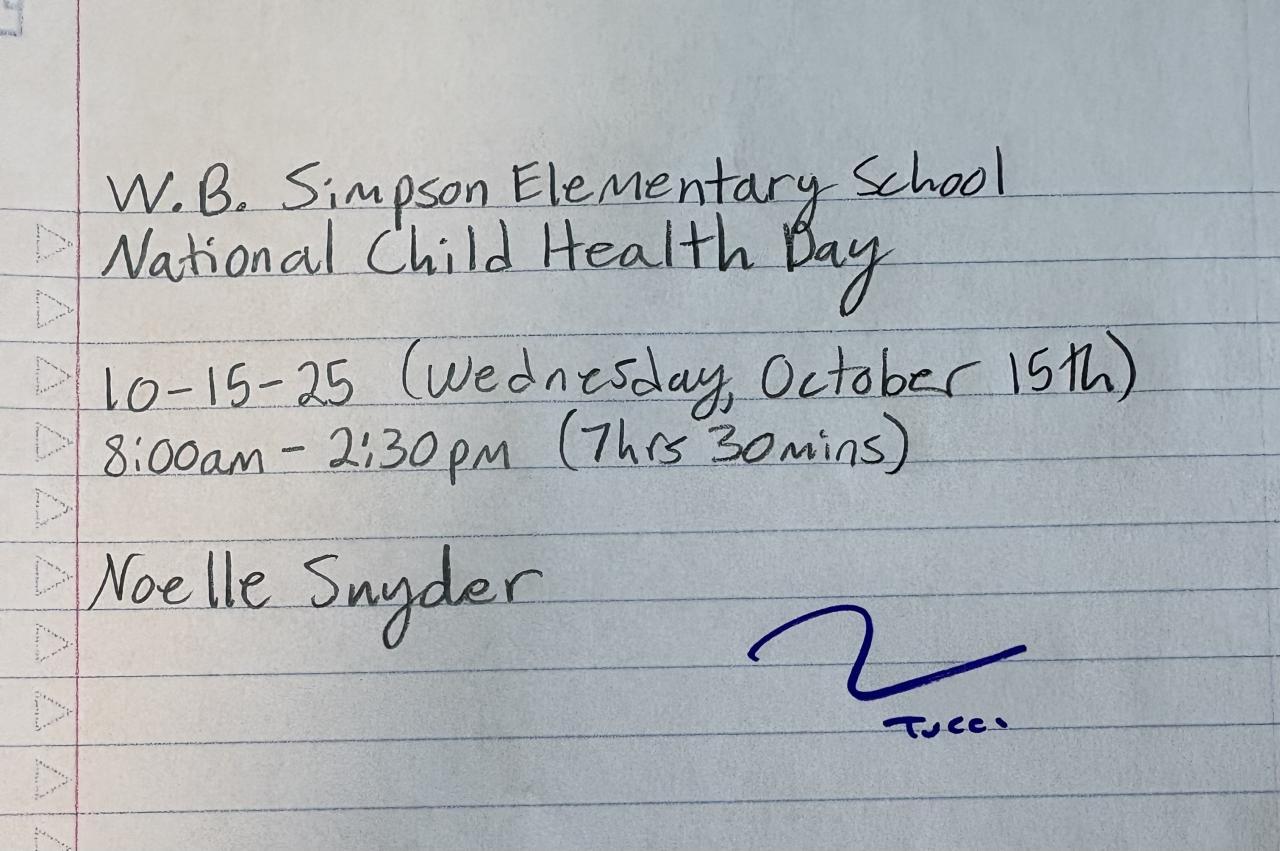 W.B. Simpson Elementary School
National Child Health Day
10-15-25 (Wednesday, October 15th)
8:00am - 2:30pm (7hrs 30mins)
Noelle Snyder
Tucci